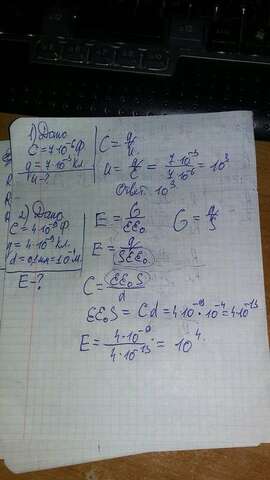 1) Дано
C = 7·10⁻⁶ Ф
q = 7·10⁻³ Кл
U - ?
C = q/u
u = q/C = 7·10⁻³/7·10⁻⁶ = 10³
Ответ: 10³
2) Дано
C = 4·10⁻⁹ Ф
q = 4·10⁻⁹ Кл.
d = 0,1 мм = 10⁻⁴ м.
E - ?
E = G/εε₀ G = q/S
E = q/Sεε₀
C = εε₀S/d
εε₀S = Cd = 4·10⁻⁹·10⁻⁴ = 4·10⁻¹³
E = 4·10⁻⁹/4·10⁻¹³ = 10⁴.